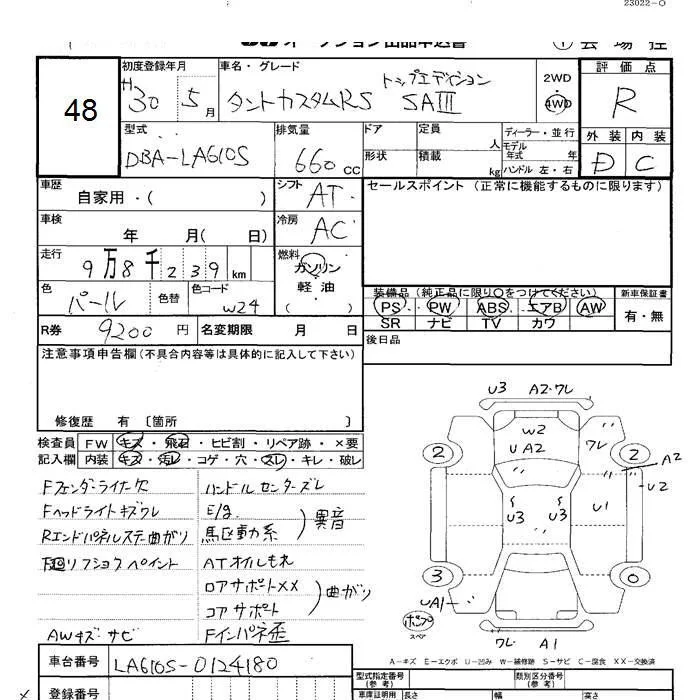 23022-0
オークション出品申込書 ① 会場控
48
初度登録年月 車名・グレード 評価点
H30 5月 タントカスタムRS トップエディション SAⅢ 2WD 4WD R
型式 排気量 ドア 定員 ディーラー・並行 外装 内装
DBA-LA610S 660cc 形状 積載 人 kg モデル年式 年 ハンドル 左・右 D C
車歴 自家用・( ) シフト AT セールスポイント (正常に機能するものに限ります)
車検 年 月( 日) 冷房 AC
走行 9万8千239km 燃料 ガソリン 軽油 ( )
色 パール 色替 色コード W24
装備品 (純正品に限り○をつけてください) 新車保証書
PS PW ABS エアB AW 有・無
SR ナビ TV カワ
R券 9200円 名変期限 月 日
後日品
注意事項申告欄(不具合内容等は具体的に記入して下さい)
修復歴 有 〔箇所 〕
検査員 FW キズ・飛石・ヒビ割・リペア跡・×要
記入欄 内装 キズ・汚レ・コゲ・穴・スレ・キレ・破レ
Fフェンダーライナー欠
Fヘッドライトキズワレ
Rエンドパネルステー曲がリ
下回リフショクペイント
AWキズ・サビ
ハンドルセンターズレ
E/g
馬区動系 異音
ATオイルもれ
ロアサポート××
コアサポート 曲がり
Fインパネ歪
U3 A2・ワレ
W2
U A2
ワレ
2 2
A2
U2
U3 U3 U1
3 0
UA1
ポンプ
スペア
ワレ A1
A-キズ E-エクボ U-凹み W-補修跡 S-サビ C-腐食 XX-交換済
車台番号 LA610S-0124180
型式指定番号(参考) 類別区分番号(参考)
登録番号
車庫証明用(参考) 長さ 幅 高さ